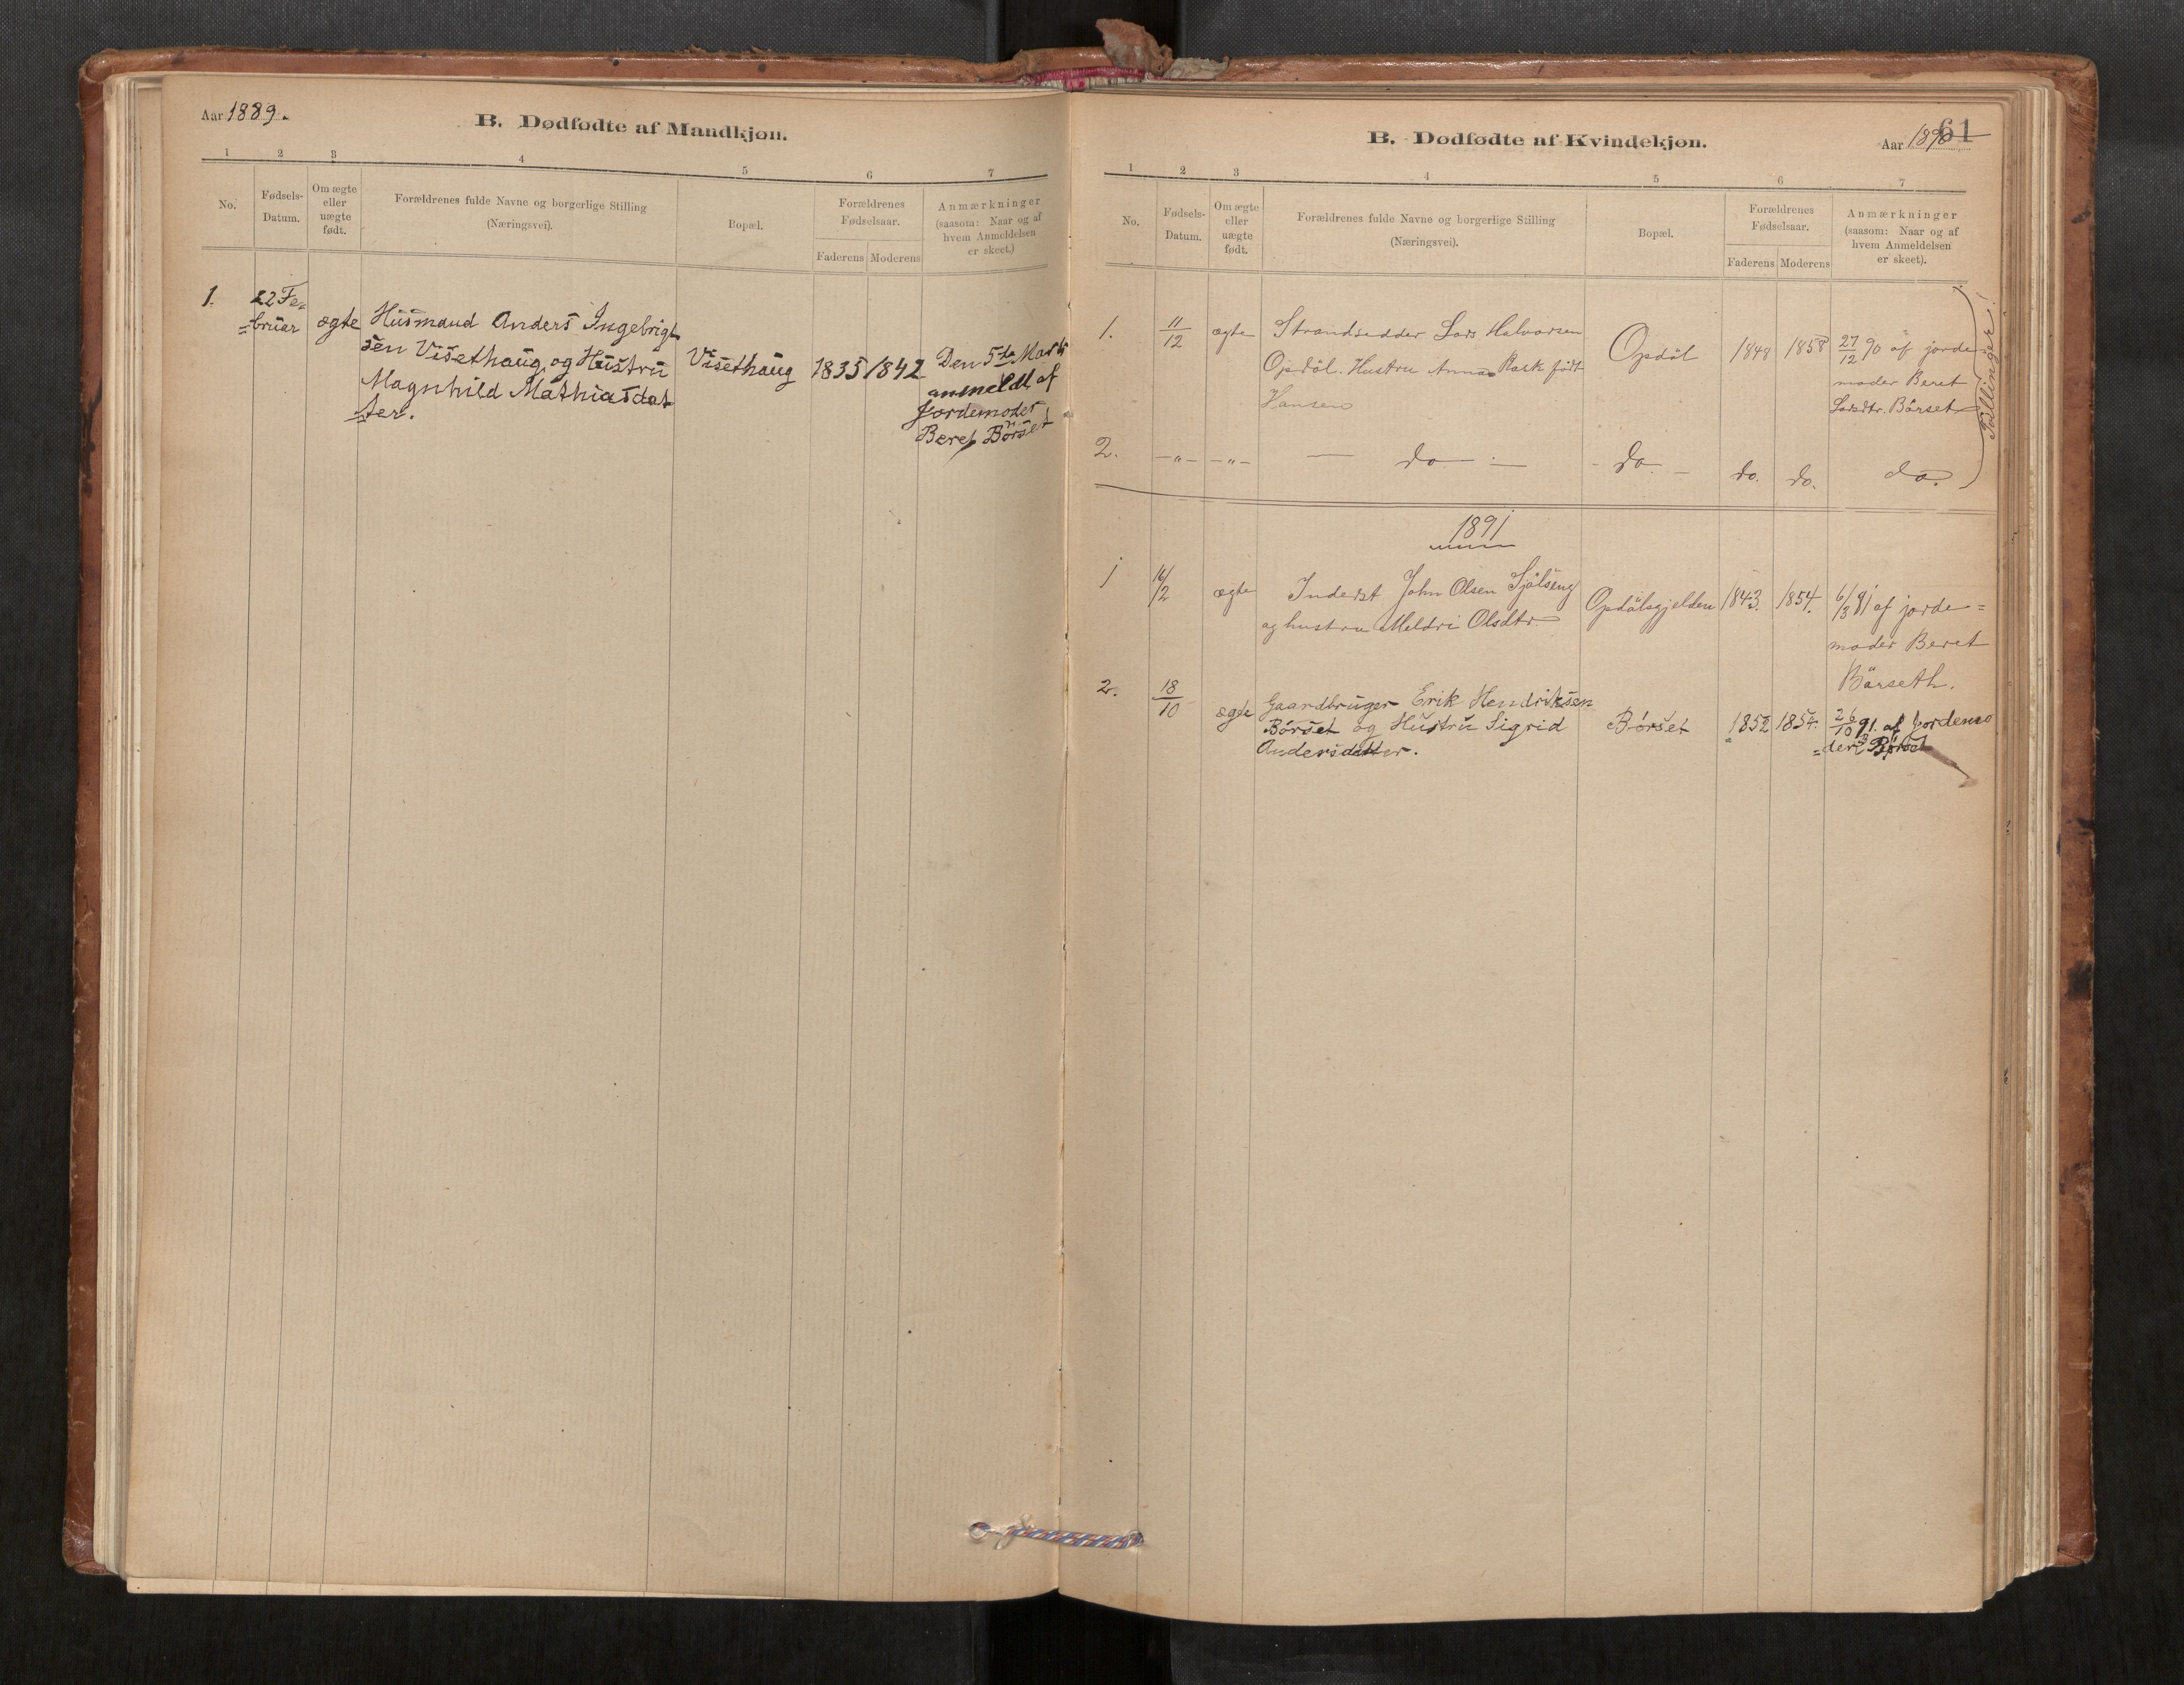 Aar 1889.
B. Dødfødte af Mandkjøn.
1 2 3 4 5 6 7
No. Fødsels-Datum. Om ægte eller uægte født. Forældrenes fulde Navne og borgerlige Stilling (Næringsvei). Bopæl. Forældrenes Fødselsaar. Faderens Moderens Anmærkninger (saasom: Naar og af hvem Anmeldelsen er skeet.)
1. 22 Fe=
=bruar ægte Husmand Anders Ingebrigt
sen Visethaug og Hustru Visethaug 1835 1842 Den 5te Marts
Magnhild Mathiasdat anmeldt af
=ter. Jordemoder
Beret Börset
61
B. Dødfødte af Kvindekjøn.
Aar 1890
1 2 3 4 5 6 7
No. Fødsels-Datum. Om ægte eller uægte født. Forældrenes fulde Navne og borgerlige Stilling (Næringsvei). Bopæl. Forældrenes Fødselsaar. Faderens Moderens Anmærkninger (saasom: Naar og af hvem Anmeldelsen er skeet).
1. 11/12 ægte Strandsidder Lars Halvorsen Opdöl 1848 1858 27/12 90 af jorde=
Opdöl. Hustru Anna Rask født moder Beret
Hansen Larsdtr. Börset
2. -"- -"- — do. — - do. — do. do. do.
Tvillinger!
1891
1 16/2 ægte Inderst John Olsen Sjölseng Opdölsgjelden 1843. 1854. 6/3 91 af jorde=
og hustru Meldri Olsdtr. moder Beret
Börseth.
2. 18/10 ægte Gaardbruger Erik Hendriksen
Börset og Hustru Sigrid Börset 1852 1854. 26/10 91. af Jordemo
Andersdatter. =der B. Börset